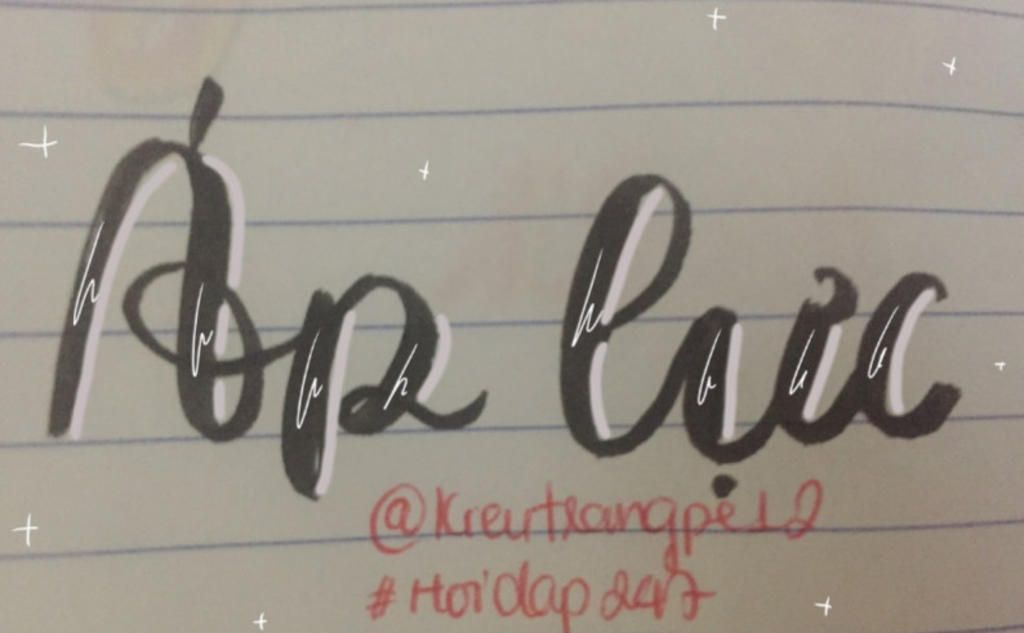 Áp lực
@Kieutrangpé12
#Hoidap247